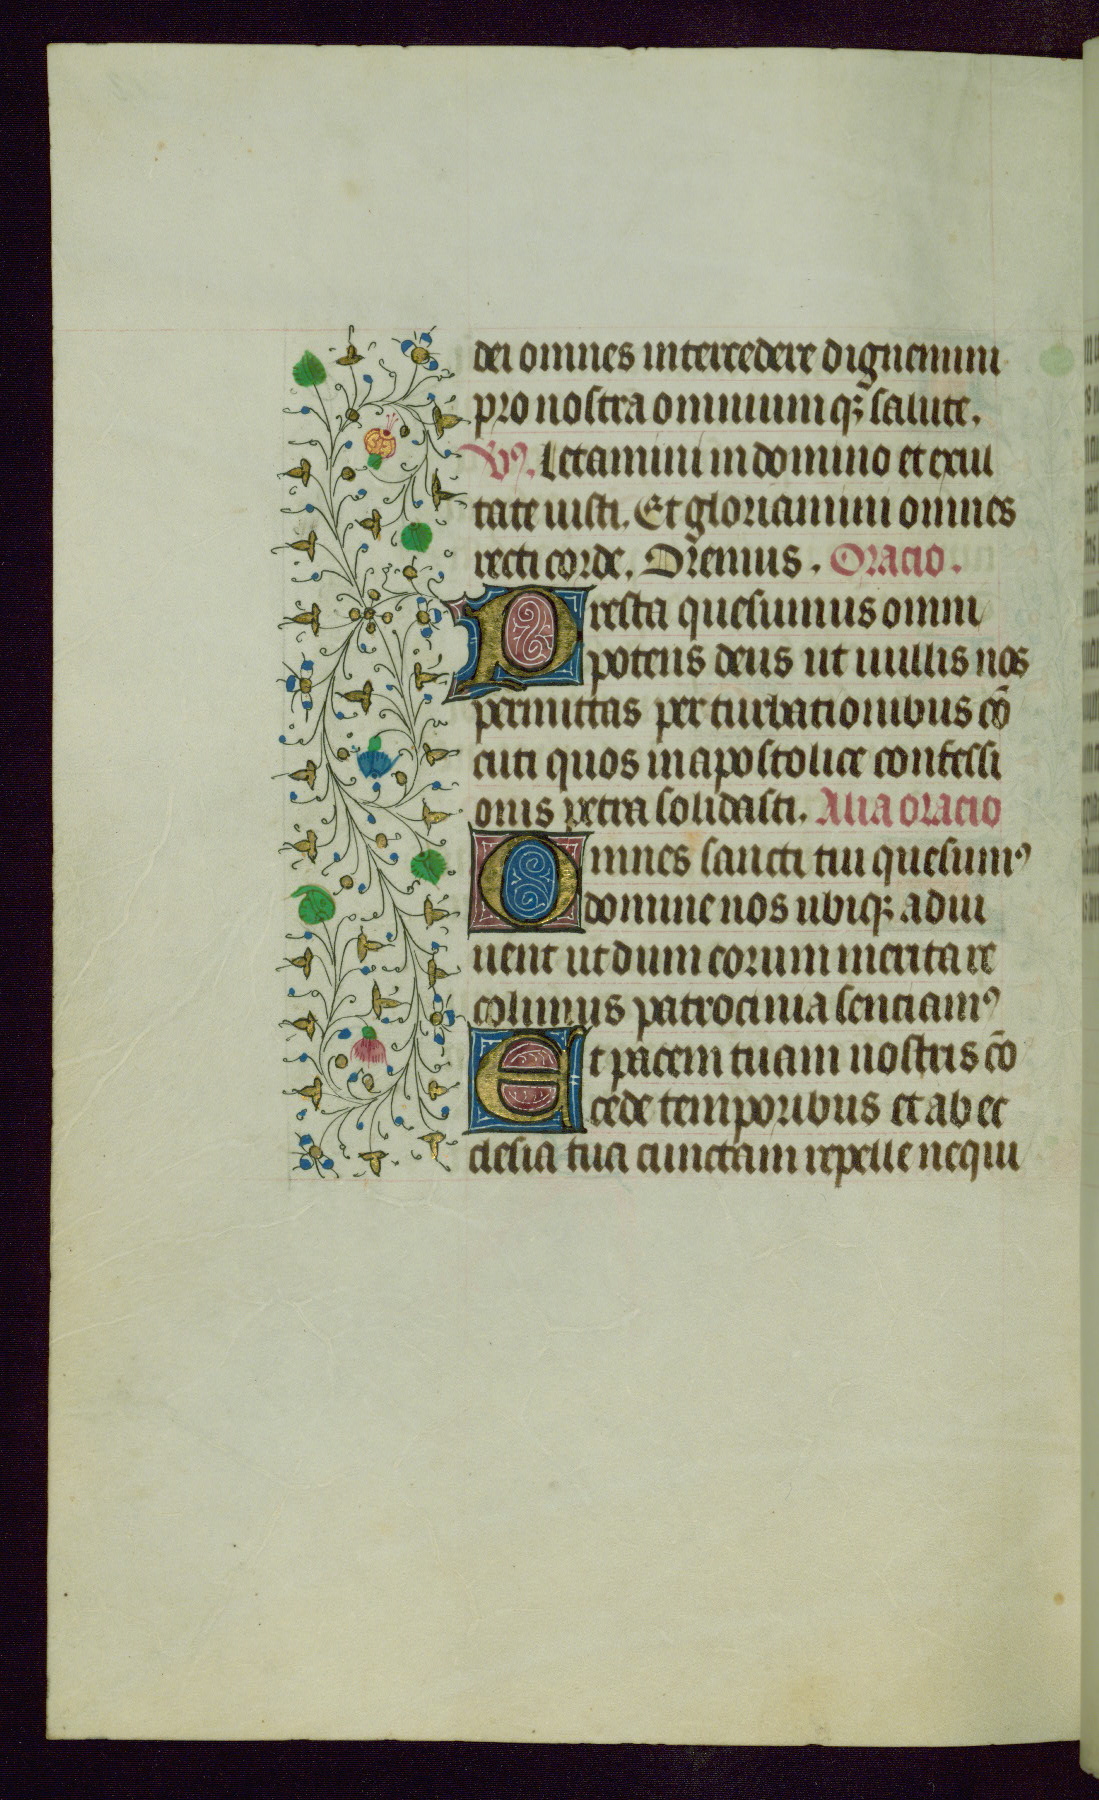 dei omnes intercedere dignemini
pro nostra omnium q; salute.
Vꝰ. Letamini in domino et exul
tate iusti. Et gloriamini omnes
recti corde. Oremus. Oracio.
Presta quesumus omni
potens deus ut nullis nos
permittas perturbationibus cō
cuti quos in apostolice confessi
onis petra solidasti. Alia oracio
Omnes sancti tui quesumꝰ
domine nos ubiq; adiu
uent ut dum eorum merita re
colimus patrocinia senciamꝰ
Et pacem tuam nostris cō
cede temporibus et ab ec
clesia tua cunctam repelle nequi